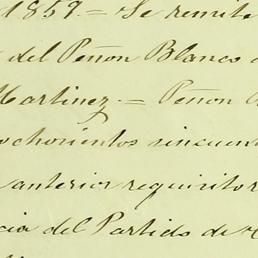 1859.= Se remite
del Peñon Blanco
Martinez.= Peñon
ochocientos cincuent
anterior requisitor
cia del Partido de